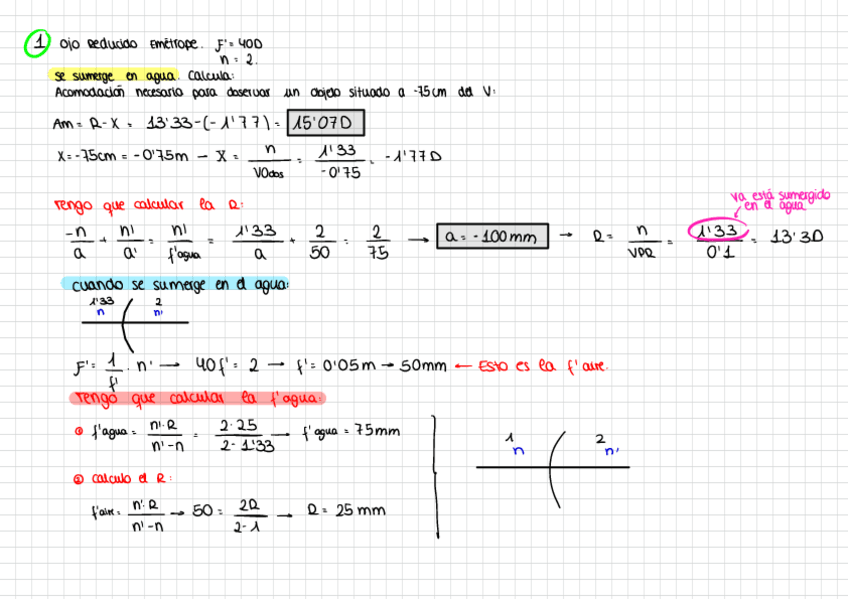 1 Ojo Reducido Emétrope. F'= 40D
n = 2.
se sumerge en agua. Calcula:
Acomodación necesaria para observar un objeto situado a -75cm del V:
Am = R-X = 13'33-(-1'77) = 15'07D
X=-75cm = -0'75m — X = n / VOdos = 1'33 / -0'75 = -1'77D
Tengo que calcular la R:
ya está sumergido
en el agua
-n/a + n'/a' = n'/f'agua = 1'33/a + 2/50 = 2/75 → a = -100mm → R = n/VPR = 1'33/0'1 = 13'3D
cuando se sumerge en el agua:
1'33 2
n n'
F' = 1/f' · n' → 40f' = 2 → f' = 0'05m → 50mm ← Esto es la f'aire.
Tengo que calcular la f'agua:
① f'agua = n'·R / n'-n = 2·25 / 2-1'33 → f'agua = 75mm
1 2
n n'
② Calculo el R:
f'aire = n'·R / n'-n → 50 = 2R / 2-1 → R = 25 mm